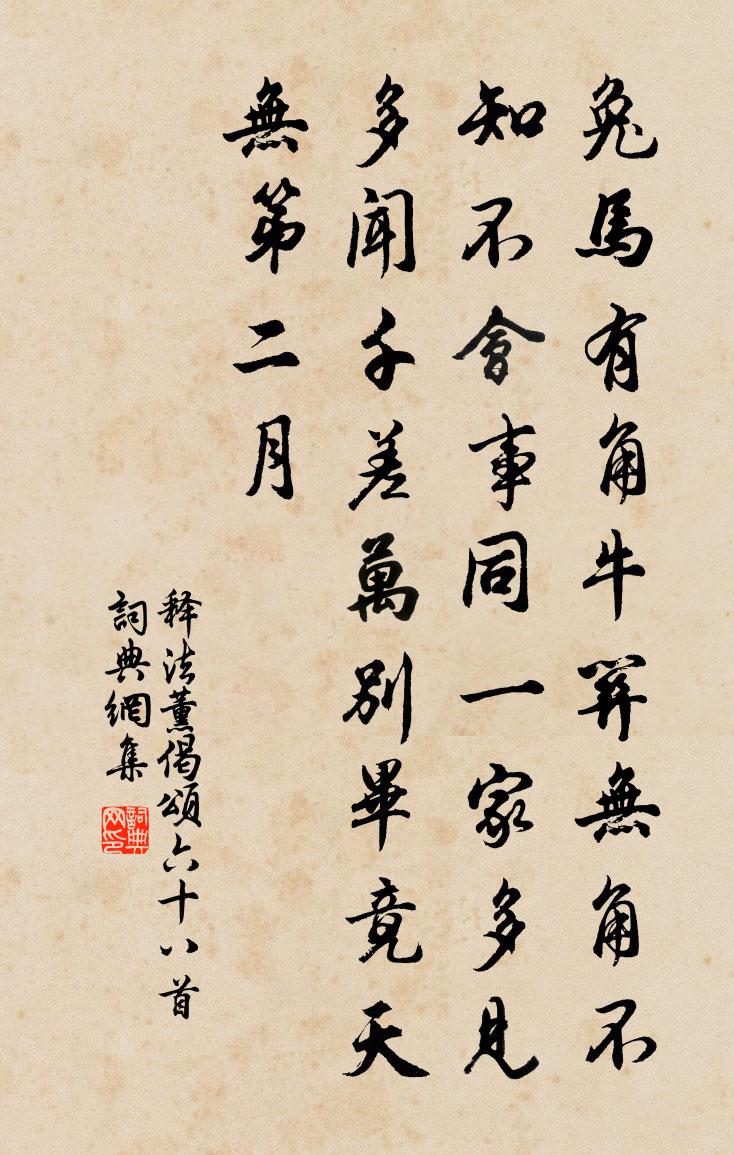 兔馬有角牛無角不
知不會事同一家多見
多聞千差萬別畢竟天
無第二月
释法薰偈頌六十八首
詞典網集
詞典网印